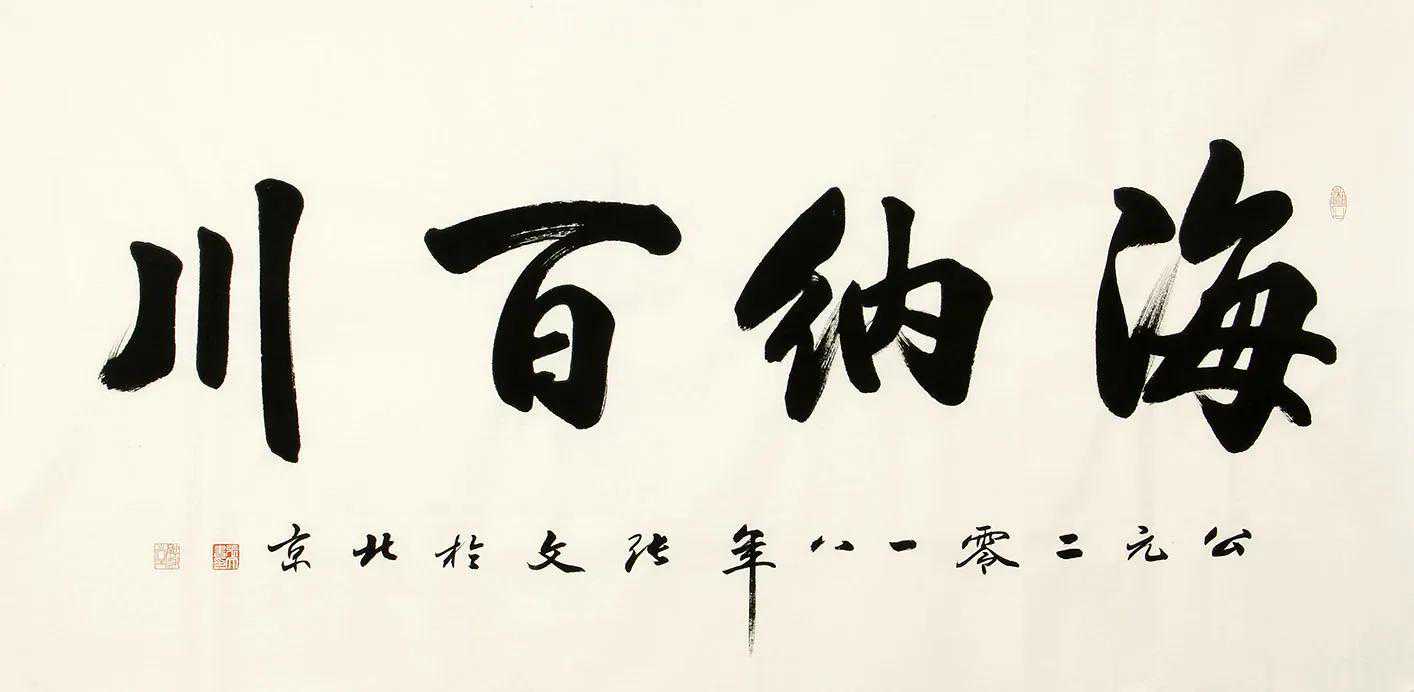 海纳百川
公元二零一八年张文於北京